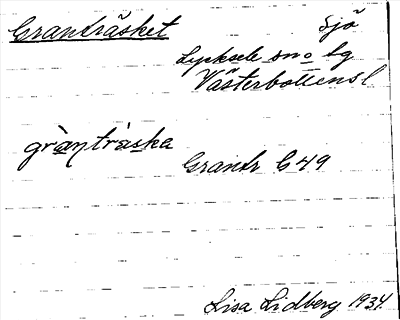 Granträsket Sjö
Lycksele sn o lg
Västerbottensl
gràntràska
Grantr G 49
Lisa Lidberg 1934